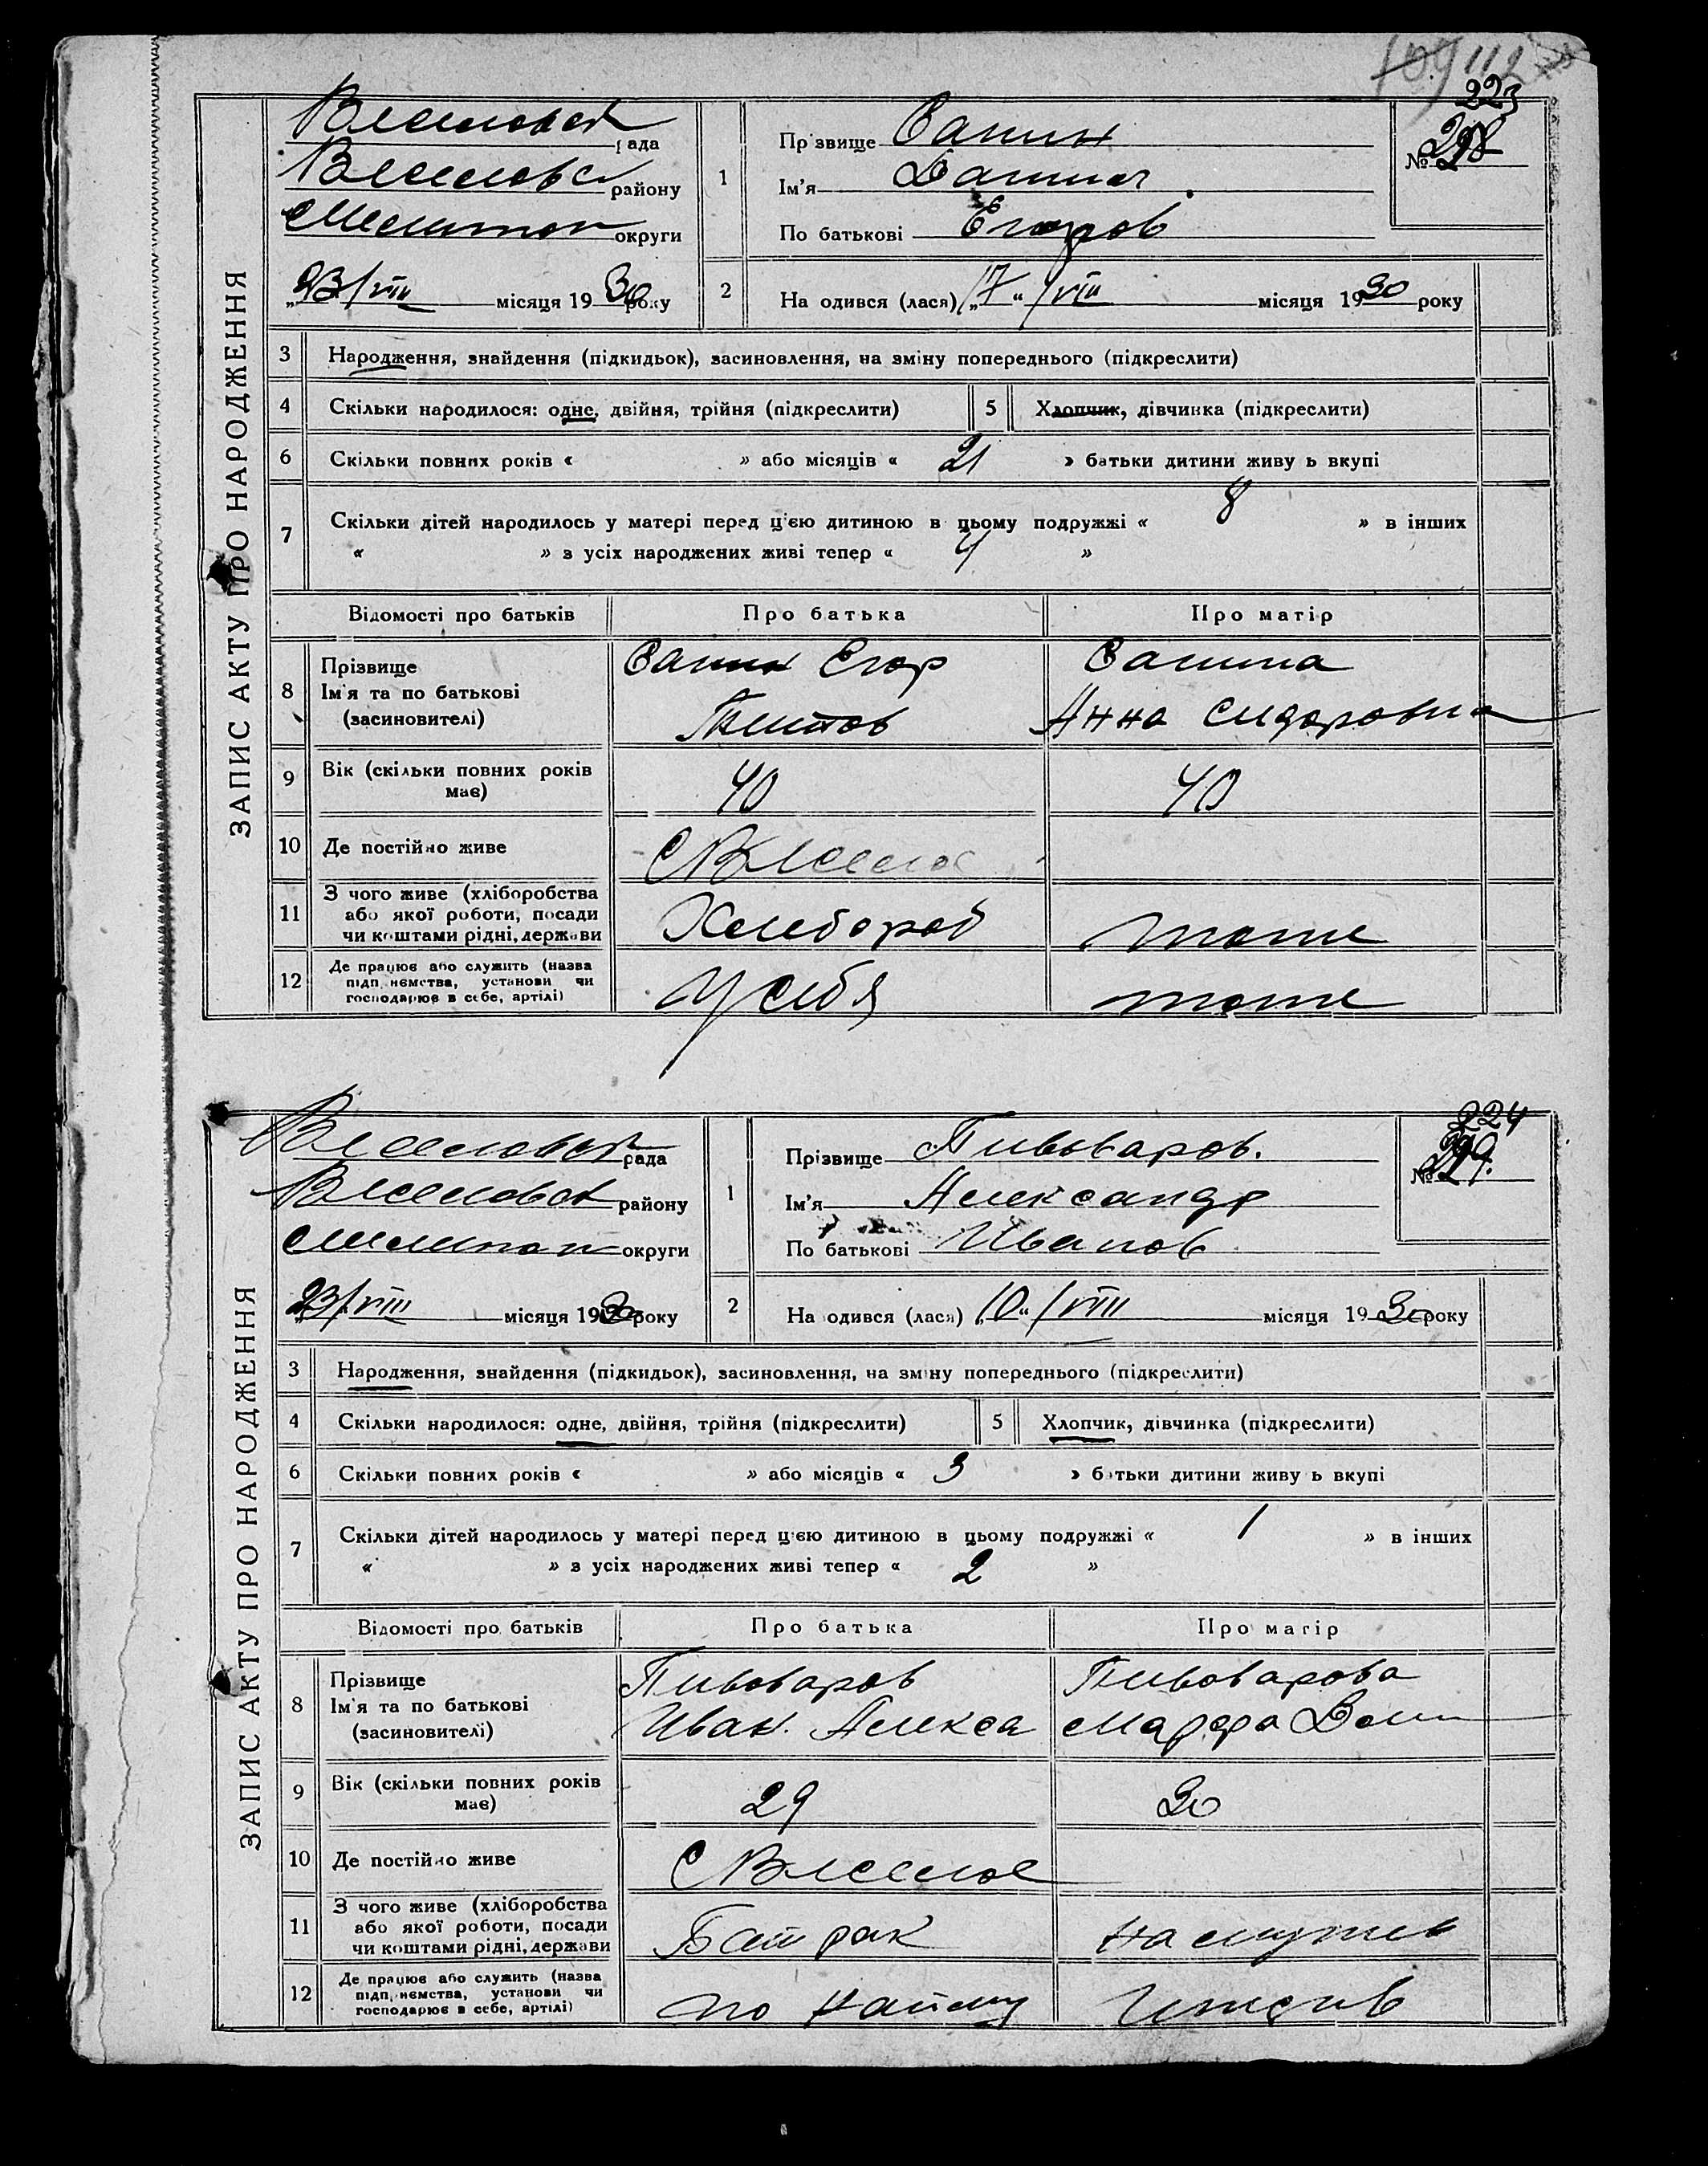 109 112
223
Веселовск рада
Веселовск району
Мелитоп округи
„23/VIII місяця 1930 року
1
Прізвище Санин
Ім'я
По батькові Егоров
№ 218
2
На одився (лася) „17“/VIII місяця 1930 року
ЗАПИС АКТУ ПРО НАРОДЖЕННЯ
3 Народження, знайдення (підкидьок), засиновлення, на зміну попереднього (підкреслити)
4 Скільки народилося: одне, двійня, трійня (підкреслити) 5 Хлопчик, дівчинка (підкреслити)
6 Скільки повних років « » або місяців « 21 » батьки дитини живу ь вкупі
7 Скільки дітей народилось у матері перед цією дитиною в цьому подружжі « 8 » в інших
« » з усіх народжених живі тепер « 4 »
Відомості про батьків Про батька Про матір
8 Прізвище
Ім'я та по батькові
(засиновителі)
Санин Егор
Титов
Санина
Анна Сидоровна
9 Вік (скільки повних років
має)
40 40
10 Де постійно живе С Веселое
11 З чого живе (хліборобства
або якої роботи, посади
чи коштами рідні, держави
Хлебороб тоже
12 Де працює або служить (назва
підп иємства, установи чи
господарює в себе, артілі)
У себя тоже
224
Веселовск рада
Веселовск району
Мелитоп округи
„23/VIII місяця 1930 року
1
Прізвище Пивоваров.
Ім'я Александр
По батькові Иванов
№ 219.
2
На одився (лася) „10“/VIII місяця 1930 року
ЗАПИС АКТУ ПРО НАРОДЖЕННЯ
3 Народження, знайдення (підкидьок), засиновлення, на зміну попереднього (підкреслити)
4 Скільки народилося: одне, двійня, трійня (підкреслити) 5 Хлопчик, дівчинка (підкреслити)
6 Скільки повних років « » або місяців « 3 » батьки дитини живу ь вкупі
7 Скільки дітей народилось у матері перед цією дитиною в цьому подружжі « 1 » в інших
« » з усіх народжених живі тепер « 2 »
Відомості про батьків Про батька Про матір
8 Прізвище
Ім'я та по батькові
(засиновителі)
Пивоваров
Иван. Алекса
Пивоварова
Марфа
9 Вік (скільки повних років
має)
29 30
10 Де постійно живе С Веселое
11 З чого живе (хліборобства
або якої роботи, посади
чи коштами рідні, держави
Батрак На
12 Де працює або служить (назва
підп иємства, установи чи
господарює в себе, артілі)
по найму Иждив